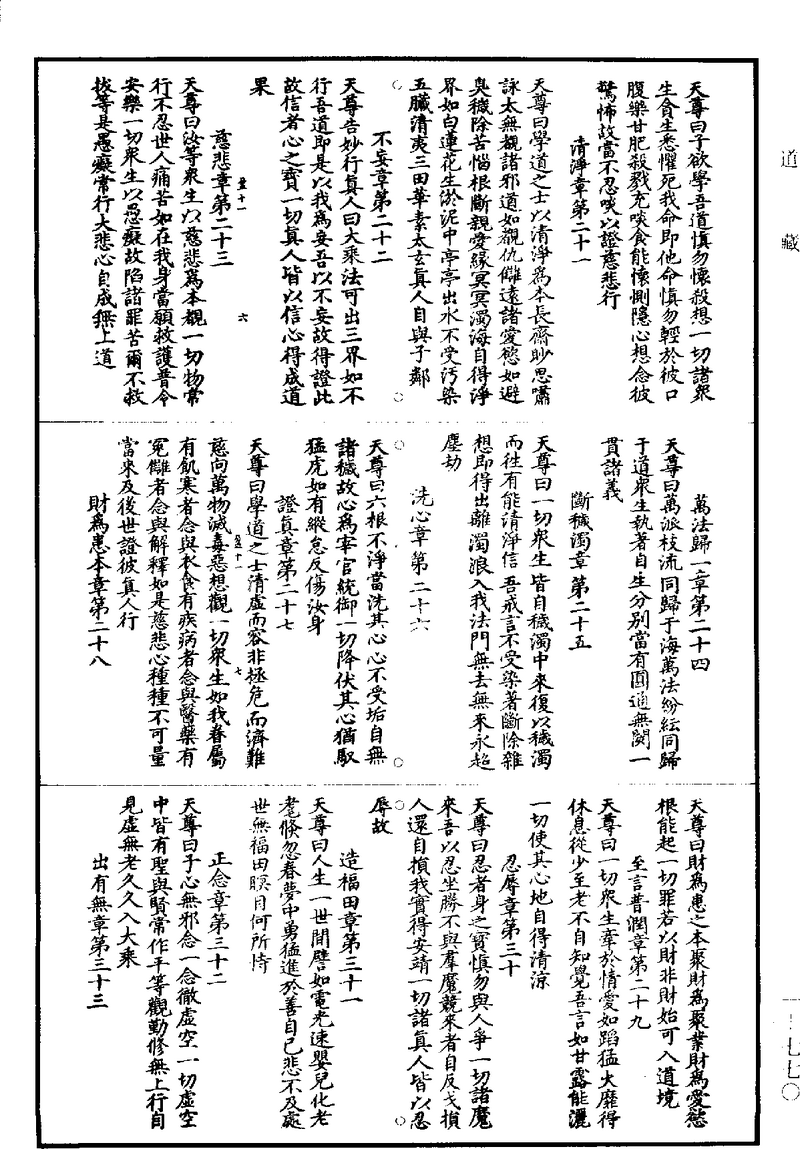 道藏
天尊曰子欲學吾道慎勿懷殺想一切諸衆
生貪生悉懼死我命即他命慎勿輕於彼口
腹樂甘肥殺戮充啖食能懷惻隱心想念彼
驚怖故當不忍啖以證慈悲行
清淨章第二十一
天尊曰學道之士以清淨爲本長齋眇思嘯
詠太無覩諸邪道如覩仇讎遠諸愛慾如避
臭穢除苦惱根斷親愛緣冥冥濁海自得淨
界如白蓮花生淤泥中亭亭出水不受污染
五臟清夷三田華素太玄真人自與子鄰
不妄章第二十二
天尊告妙行真人曰大乘法可出三界如不
行吾道即是以我爲妄吾以不妄故得證此
故信者心之寶一切真人皆以信心得成道
果
慈悲章第二十三
六
天尊曰汝等衆生以慈悲爲本觀一切物常
行不忍世人痛苦如在我身當願救護普令
安樂一切衆生以愚癡故陷諸罪苦爾不救
拔等是愚癡常行大悲心自成無上道
萬法歸一章第二十四
天尊曰萬派枝流同歸于海萬法紛紜同歸
于道衆生執著自生分别當有圓通無闕一
貫諸義
斷穢濁章第二十五
天尊曰一切衆生皆自穢濁中來復以穢濁
而往有能清淨信吾戒言不受染著斷除雜
想即得出離濁浪入我法門無去無來永超
塵劫
洗心章第二十六
天尊曰六根不淨當洗其心心不受垢自無
諸穢故心爲宰官統御一切降伏其心猶馭
猛虎如有縱怠反傷汝身
證真章第二十七
天尊曰學道之士清虚而容非極危而濟難
七
慈向萬物滅毒惡想觀一切衆生如我眷屬
有飢寒者念與衣食有疾病者念與醫藥有
冤讎者念與解釋如是慈悲心種種不可量
當來及後世證彼真人行
財爲患本章第二十八
天尊曰財爲患之本聚財爲聚業財爲愛慾
根能起一切罪若以財非財始可入道境
至言普潤章第二十九
天尊曰一切衆生牽於情愛如蹈猛火靡得
休息從少至老不自知覺吾言如甘露能灑
一切使其心地自得清涼
忍辱章第三十
天尊曰忍者身之寶慎勿與人爭一切諸魔
來吾以忍坐勝不與羣魔競來者自反戈損
人還自損我實得安靖一切諸真人皆以忍
辱故
造福田章第三十一
天尊曰人生一世間譬如電光速嬰兒化老
耄倏忽春夢中勇猛進於善自己悲不及處
世無福田瞑目何所恃
正念章第三十二
天尊曰于心無邪念一念徹虚空一切虚空
中皆有聖與賢常作平等觀勤修無上行自
見虚無老久久入大乘
出有無章第三十三
一-七七〇